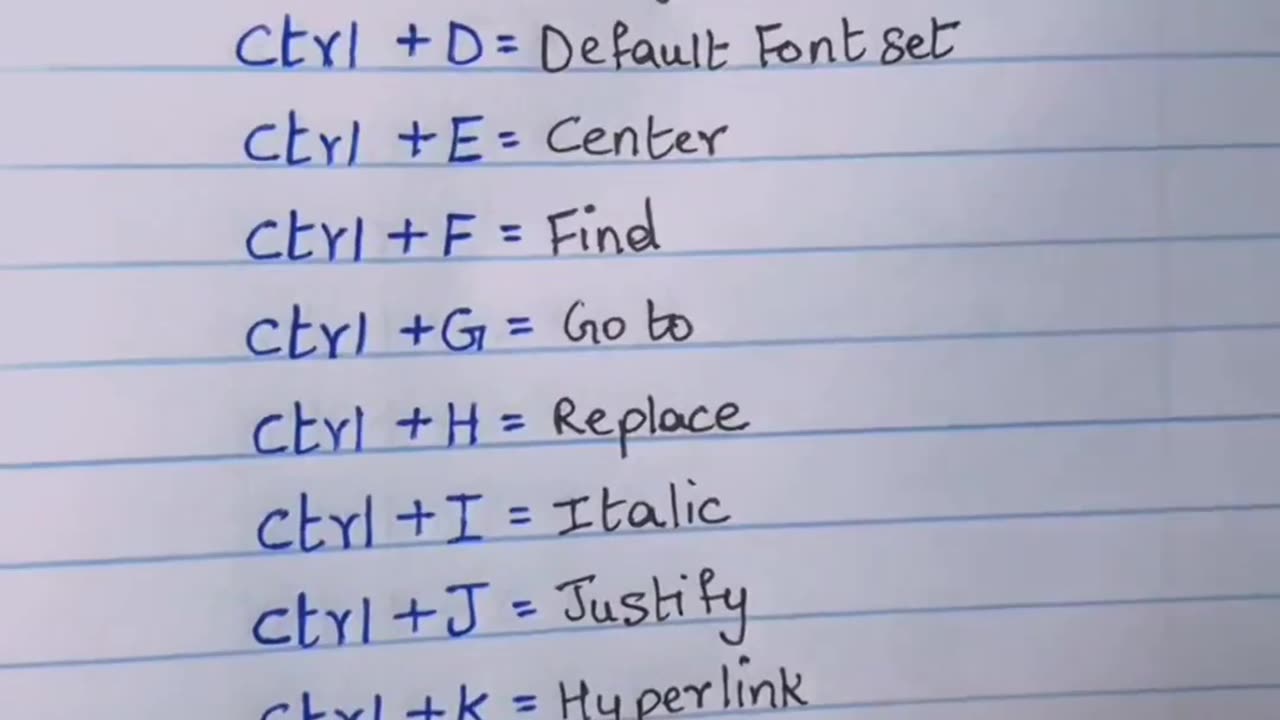 Ctrl + D = Default Font set
Ctrl + E = Center
Ctrl + F = Find
Ctrl + G = Go to
Ctrl + H = Replace
Ctrl + I = Italic
Ctrl + J = Justify
Ctrl + K = Hyperlink